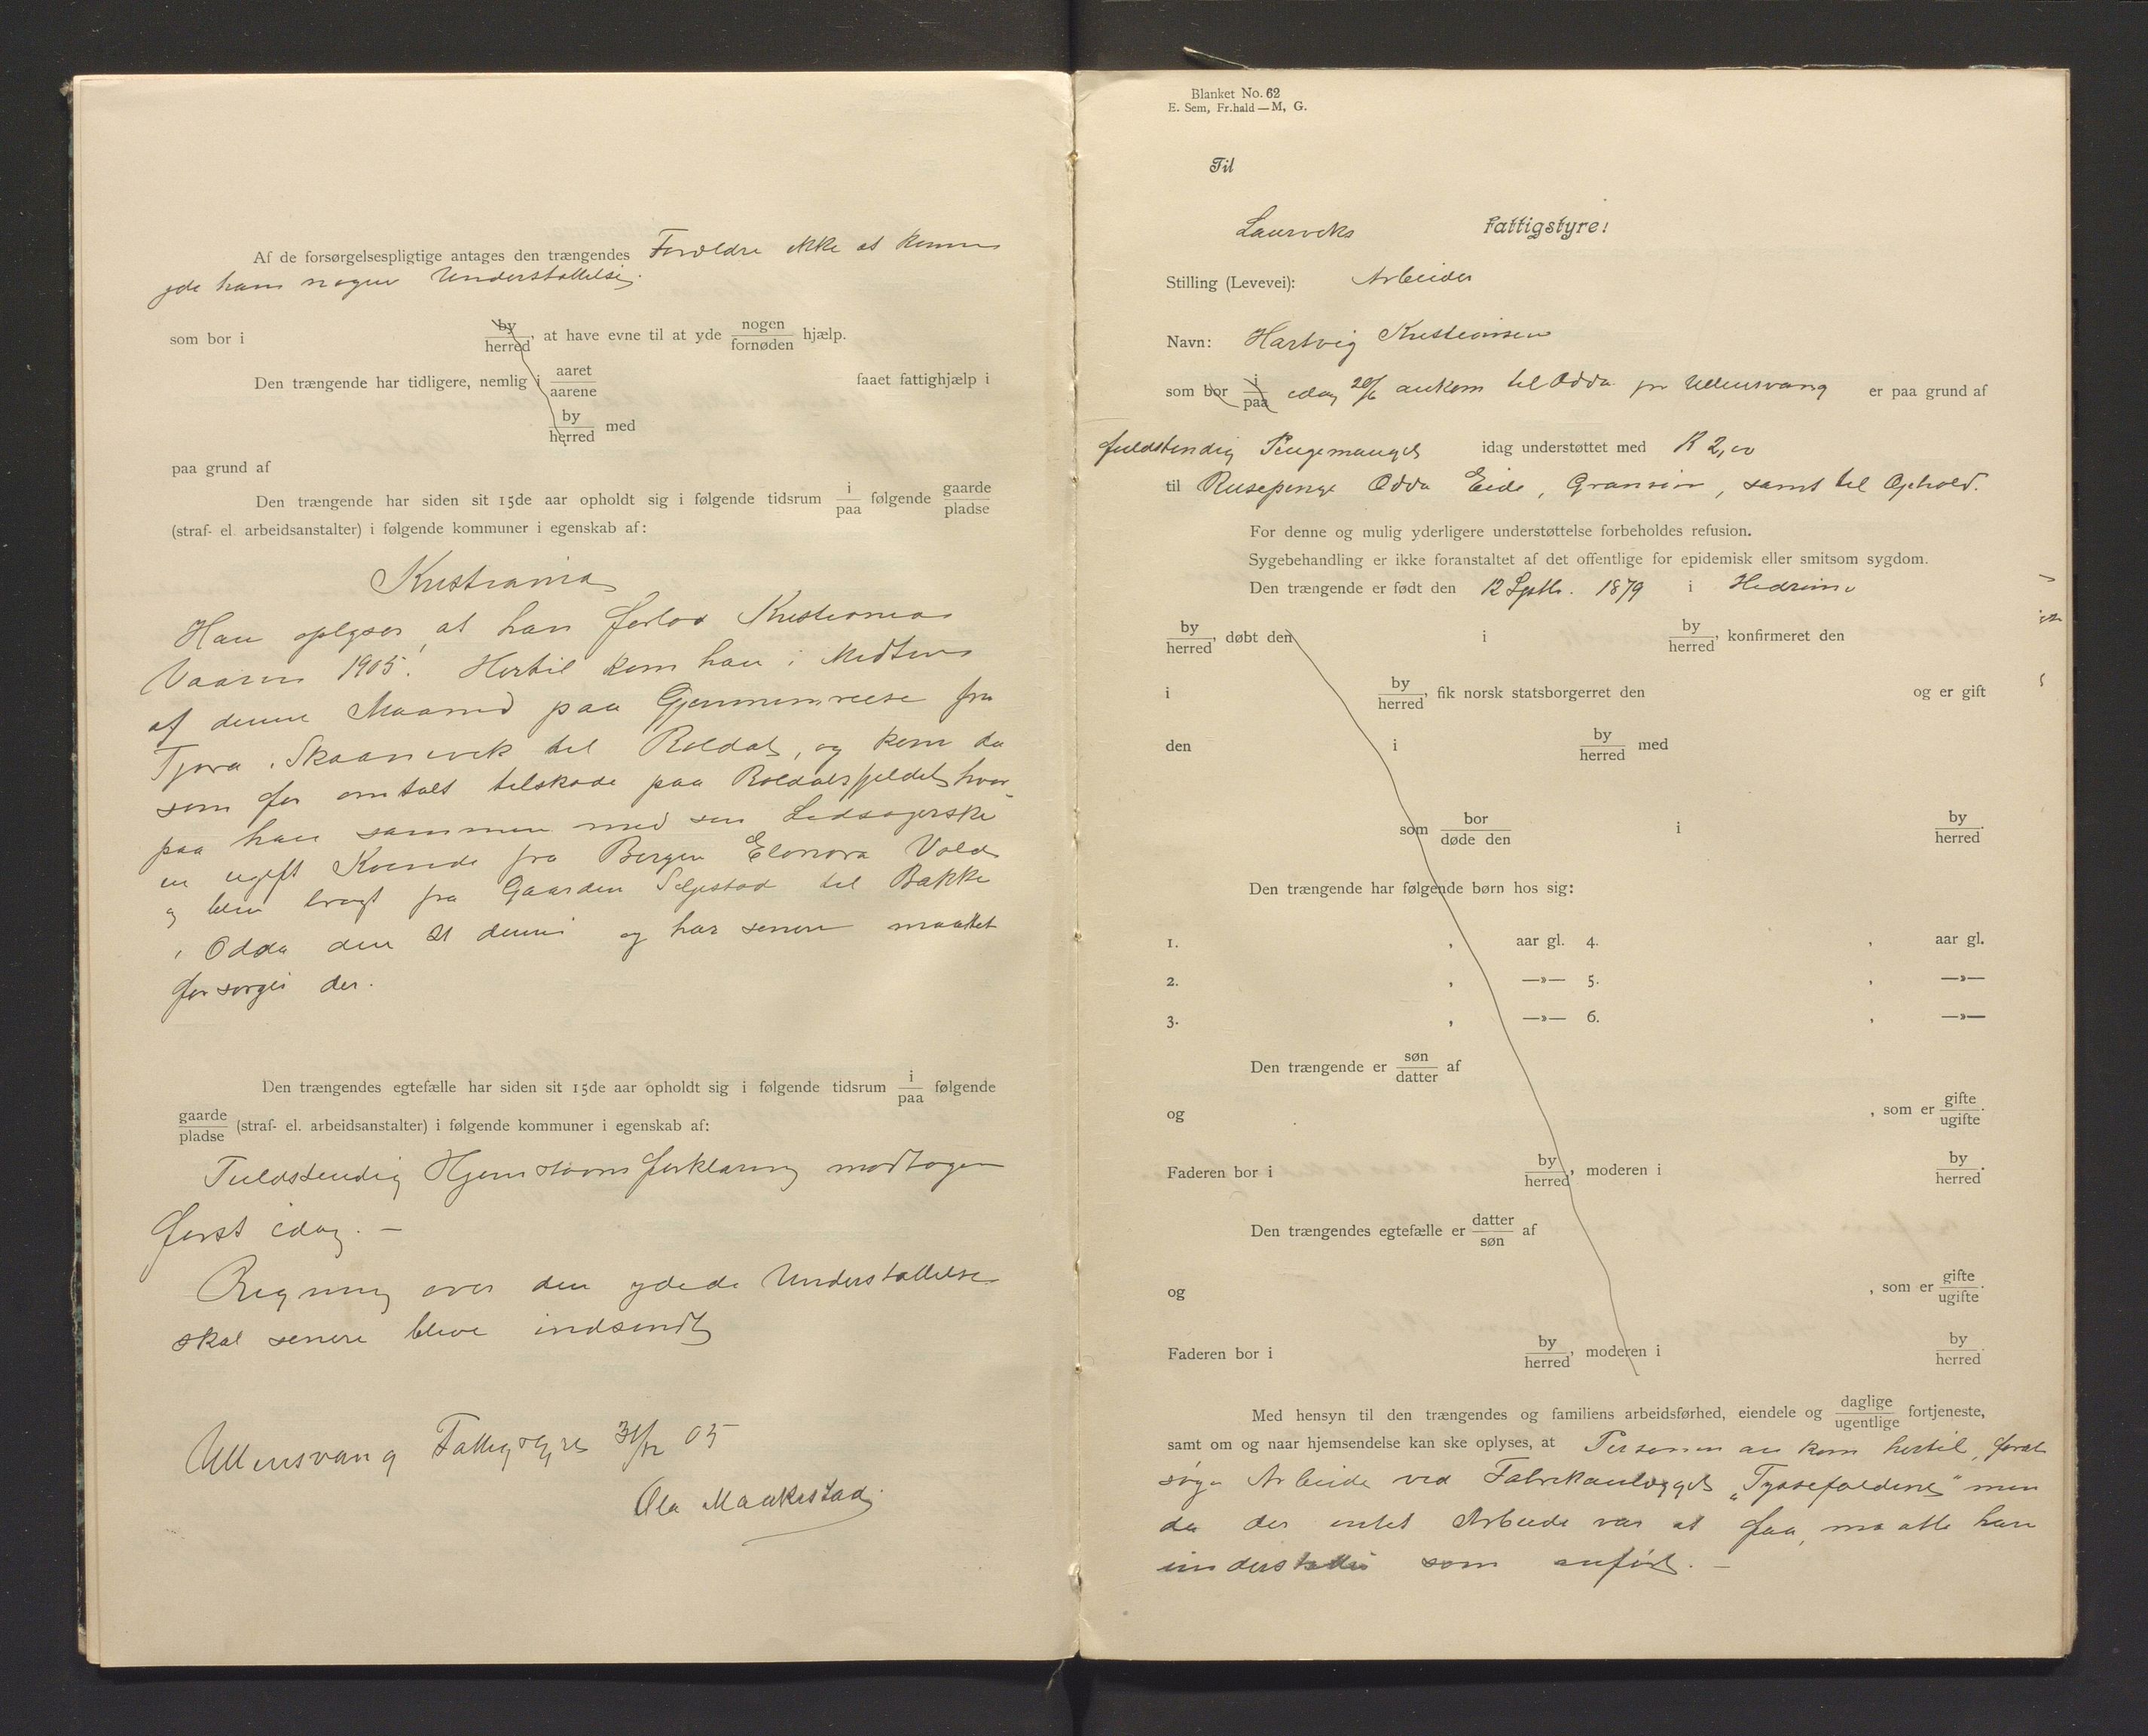 Af de forsørgelsespligtige antages den trængendes Forældre ikke at kunne
yde ham nogen Understøttelse.
som bor i by/herred, at have evne til at yde nogen/fornøden hjælp.
Den trængende har tidligere, nemlig i aaret/aarene faaet fattighjælp i
by/herred med
paa grund af
Den trængende har siden sit 15de aar opholdt sig i følgende tidsrum i/paa følgende gaarde/pladse
(straf- el. arbeidsanstalter) i følgende kommuner i egenskab af:
Kristiania
Han oplyser, at han forlod Kristiania
Vaaren 1905. Hertil kom han i Midten
af denne Maaned paa Gjennemreise fra
Tjora i Skaanevik til Røldal, og kom da
som før omtalt tilskade paa Røldalsfjeldet, hvor-
paa han sammen med sin Ledsagerske
en ugift Kvinde fra Bergen Elonora Vold
og blev bragt fra Gaarden Seljestad til Bakke
i Odda den 21 dennes og har senere maattet
forsørges der.
Den trængendes egtefælle har siden sit 15de aar opholdt sig i følgende tidsrum i/paa følgende
gaarde/pladse (straf- el. arbeidsanstalter) i følgende kommuner i egenskab af:
Fuldstendig Hjemstavnsforklaring modtagen
først idag. —
Regning over den ydede Understøttelse
skal senere blive indsendt
Ullensvang Fattigstyre 31/12 05
Ola Maakestad.
Blanket No. 62
E. Sem, Fr.hald — M, G.
Til
Laurviks Fattigstyre!
Stilling (Levevei): Arbeider
Navn: Hartvig Kristiansen
som bor i/paa idag 20/6 ankom til Odda pr Ullensvang er paa grund af
fuldstendig Pengemangel idag understøttet med K 2,00
til Reisepenge Odda Eide, Granvin, samt til Ophold.
For denne og mulig yderligere understøttelse forbeholdes refusion.
Sygebehandling er ikke foranstaltet af det offentlige for epidemisk eller smitsom sygdom.
Den trængende er født den 12 Septb. 1879 i Hedrum
by/herred, døbt den i by/herred, konfirmeret den
i by/herred, fik norsk statsborgerret den og er gift
den i by/herred med
som bor/døde den i by/herred.
Den trængende har følgende børn hos sig:
1. , aar gl. 4. , aar gl.
2. , —»— 5. , —»—
3. , —»— 6. , —»—
Den trængende er søn/datter af
og , som er gifte/ugifte.
Faderen bor i by/herred, moderen i by/herred.
Den trængendes egtefælle er datter/søn af
og , som er gifte/ugifte.
Faderen bor i by/herred, moderen i by/herred.
Med hensyn til den trængendes og familiens arbeidsførhed, eiendele og daglige/ugentlige fortjeneste,
samt om og naar hjemsendelse kan ske oplyses, at Personen an kom hertil, forat
søge Arbeide ved Fabrikanlægget „Tyssefaldene" men
da der intet Arbeide var at faa, maatte han
understøttes som anført. —